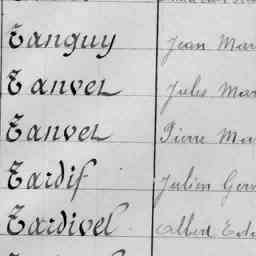 Tanguy Jean Mar
Tanvez Jules Mar
Tanvez Pierre Ma
Tardif Julien Ger
Tardivel Albert Ed